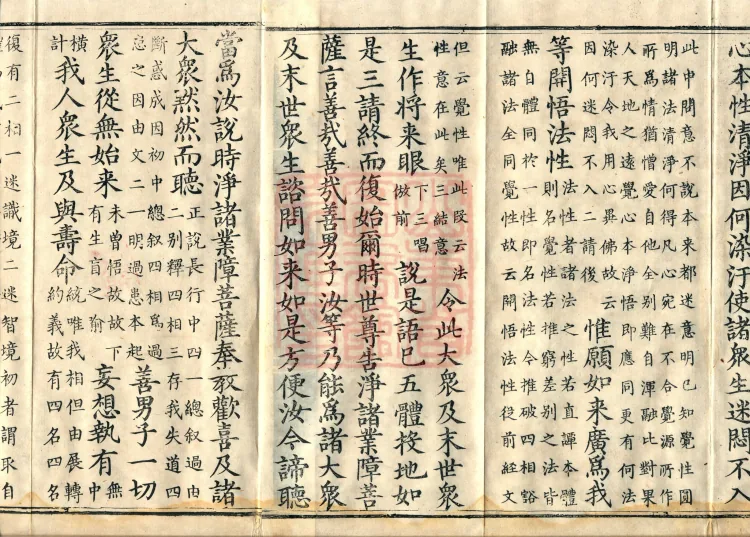 心本性清淨因何染汙使諸衆生迷悶不入
此中開意不說本来都迷意明已知覺性圓
明諸法清淨何得凡心宛在不合覺源所作
所爲情猶憎愛自他全别難自渾融比對果
人天地之遠覺心本淨悟即應同更有何法
染汙令我用心異佛故云
因何迷悶不入二請後
惟願如来廣爲我
等開悟法性
法性者諸法之性若直譚本體
則名覺性若推窮差别之法皆
無自體同於一性即名法性令推破四相豁
融諸法全同覺性故云開悟法性役前経文
但云覺性唯此段云法
性意在此矣三結意
令此大衆及末世衆
生作将来眼
下三唱
做前
說是語已五體投地如
是三請終而復始爾時世尊告淨諸業障菩
薩言善哉善哉善男子汝等乃能爲諸大衆
及末世衆生諮問如来如是方便汝今諦聽
當爲汝說時淨諸業障菩薩奉教歡喜及諸
大衆黙然而聽
正說長行中四一總叙過由
二别釋四相三存我失道四
斷惑成因初中總叙四相爲過
忘之因由文二一明過患本起
善男子一切
衆生從無始来
未曽悟故故下
有生盲之喻
妄想執有
無
中
横
計
我人衆生及與壽命
統唯我相但由展轉
約義故有四名四名
復有二相一迷識境二迷智境初者謂取自